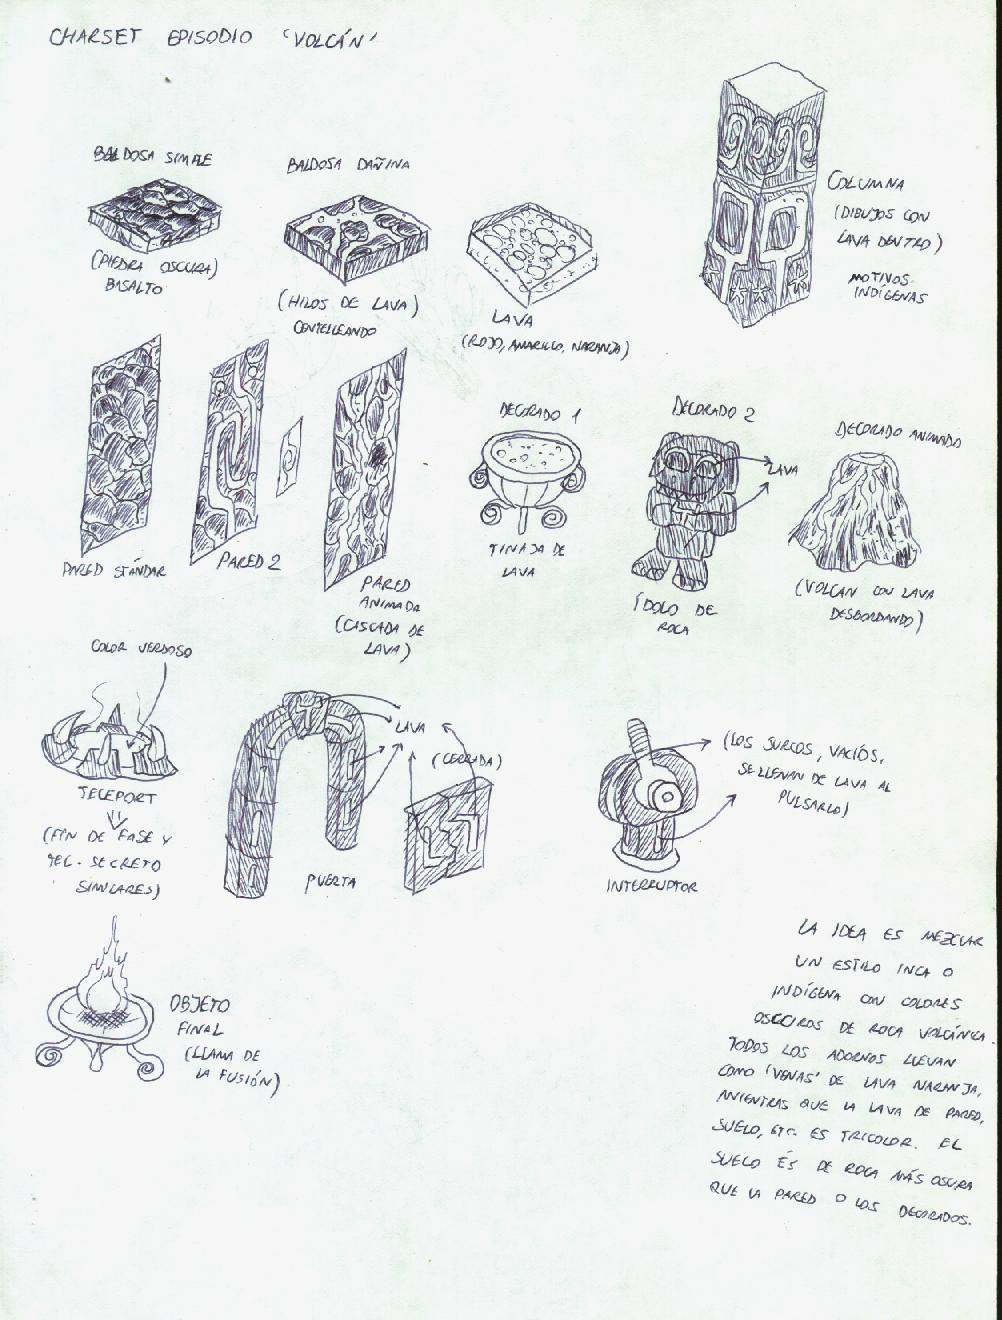 CHARSET EPISODIO 'VOLCÁN'
BALDOSA SIMPLE
(PIEDRA OSCURA)
BASALTO
BALDOSA DAÑINA
(HILOS DE LAVA)
CENTELLEANDO
LAVA
(ROJO, AMARILLO, NARANJA)
COLUMNA
(DIBUJOS CON
LAVA DENTRO)
MOTIVOS
INDÍGENAS
PARED STÁNDAR
PARED 2
PARED
ANIMADA
(CASCADA DE
LAVA)
DECORADO 1
TINAJA DE
LAVA
DECORADO 2
LAVA
ÍDOLO DE
ROCA
DECORADO ANIMADO
(VOLCAN CON LAVA
DESBORDANDO)
COLOR VERDOSO
TELEPORT
(FIN DE FASE Y
TEL. SECRETO
SIMILARES)
LAVA
(CERRADA)
PUERTA
(LOS SURCOS, VACÍOS,
SE LLENAN DE LAVA AL
PULSARLO)
INTERRUPTOR
OBJETO
FINAL
(LLAMA DE
LA FUSIÓN)
LA IDEA ES MEZCLAR
UN ESTILO INCA O
INDÍGENA CON COLORES
OSCUROS DE ROCA VOLCÁNICA.
TODOS LOS ADORNOS LLEVAN
COMO 'VENAS' DE LAVA NARANJA,
MIENTRAS QUE LA LAVA DE PARED,
SUELO, ETC. ES TRICOLOR. EL
SUELO ÉS DE ROCA MÁS OSCURA
QUE LA PARED O LOS DECORADOS.